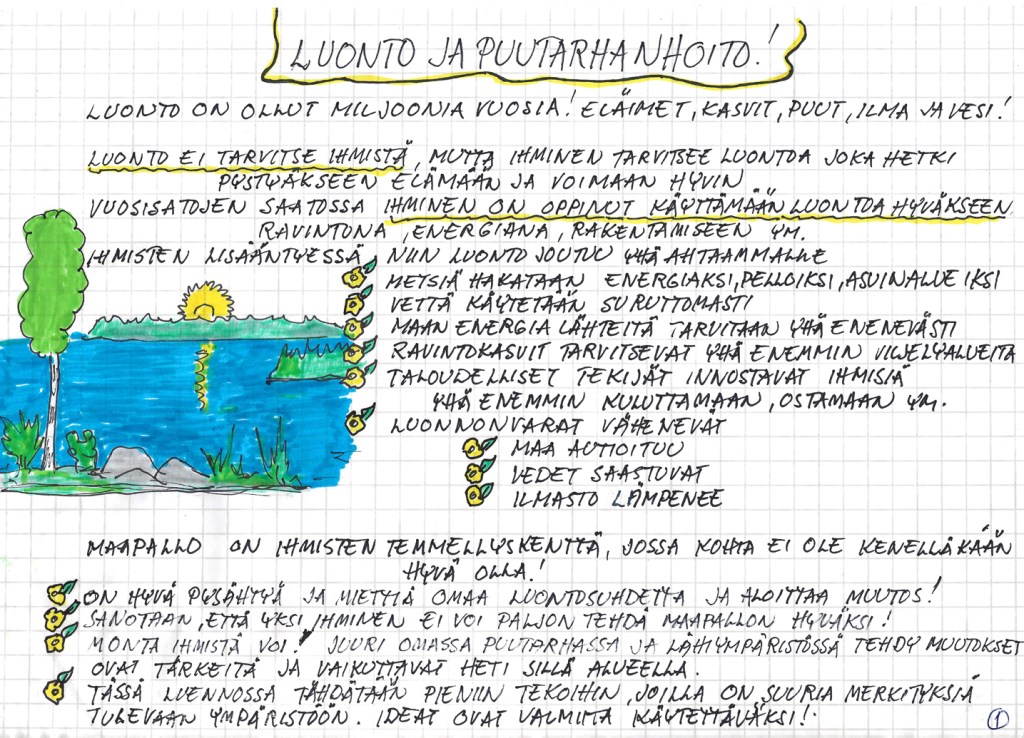 LUONTO JA PUUTARHANHOITO!
LUONTO ON OLLUT MILJOONIA VUOSIA! ELÄIMET, KASVIT, PUUT, ILMA JA VESI!
LUONTO EI TARVITSE IHMISTÄ, MUTTA IHMINEN TARVITSEE LUONTOA JOKA HETKI
PYSTYÄKSEEN ELÄMÄÄN JA VOIMAAN HYVIN
VUOSISATOJEN SAATOSSA IHMINEN ON OPPINUT KÄYTTÄMÄÄN LUONTOA HYVÄKSEEN
RAVINTONA, ENERGIANA, RAKENTAMISEEN YM.
IHMISTEN LISÄÄNTYESSÄ, NIIN LUONTO JOUTUU YHÄ AHTAAMMALLE
METSIÄ HAKATAAN ENERGIAKSI, PELLOIKSI, ASUINALUEIKSI
VETTÄ KÄYTETÄÄN SURUTTOMASTI
MAAN ENERGIA LÄHTEITÄ TARVITAAN YHÄ ENENEVÄSTI
RAVINTOKASVIT TARVITSEVAT YHÄ ENEMMIN VILJELYALUEITA
TALOUDELLISET TEKIJÄT INNOSTAVAT IHMISIÄ
YHÄ ENEMMIN KULUTTAMAAN, OSTAMAAN YM.
LUONNONVARAT VÄHENEVÄT
MAA AUTIOITUU
VEDET SAASTUVAT
ILMASTO LÄMPENEE
MAAPALLO ON IHMISTEN TEMMELLYSKENTTÄ, JOSSA KOHTA EI OLE KENELLÄKÄÄN
HYVÄ OLLA!
ON HYVÄ PYSÄHTYÄ JA MIETTIÄ OMAA LUONTOSUHDETTA JA ALOITTAA MUUTOS!
SANOTAAN, ETTÄ YKSI IHMINEN EI VOI PALJON TEHDÄ MAAPALLON HYVÄKSI!
MONTA IHMISTÄ VOI! JUURI OMASSA PUUTARHASSA JA LÄHIYMPÄRISTÖSSÄ TEHDYT MUUTOKSET
OVAT TÄRKEITÄ JA VAIKUTTAVAT HETI SILLÄ ALUEELLA.
TÄSSÄ LUENNOSSA TÄHDÄTÄÄN PIENIIN TEKOIHIN, JOILLA ON SUURIA MERKITYKSIÄ
TULEVAAN YMPÄRISTÖÖN. IDEAT OVAT VALMIITA KÄYTETTÄVÄKSI!
1